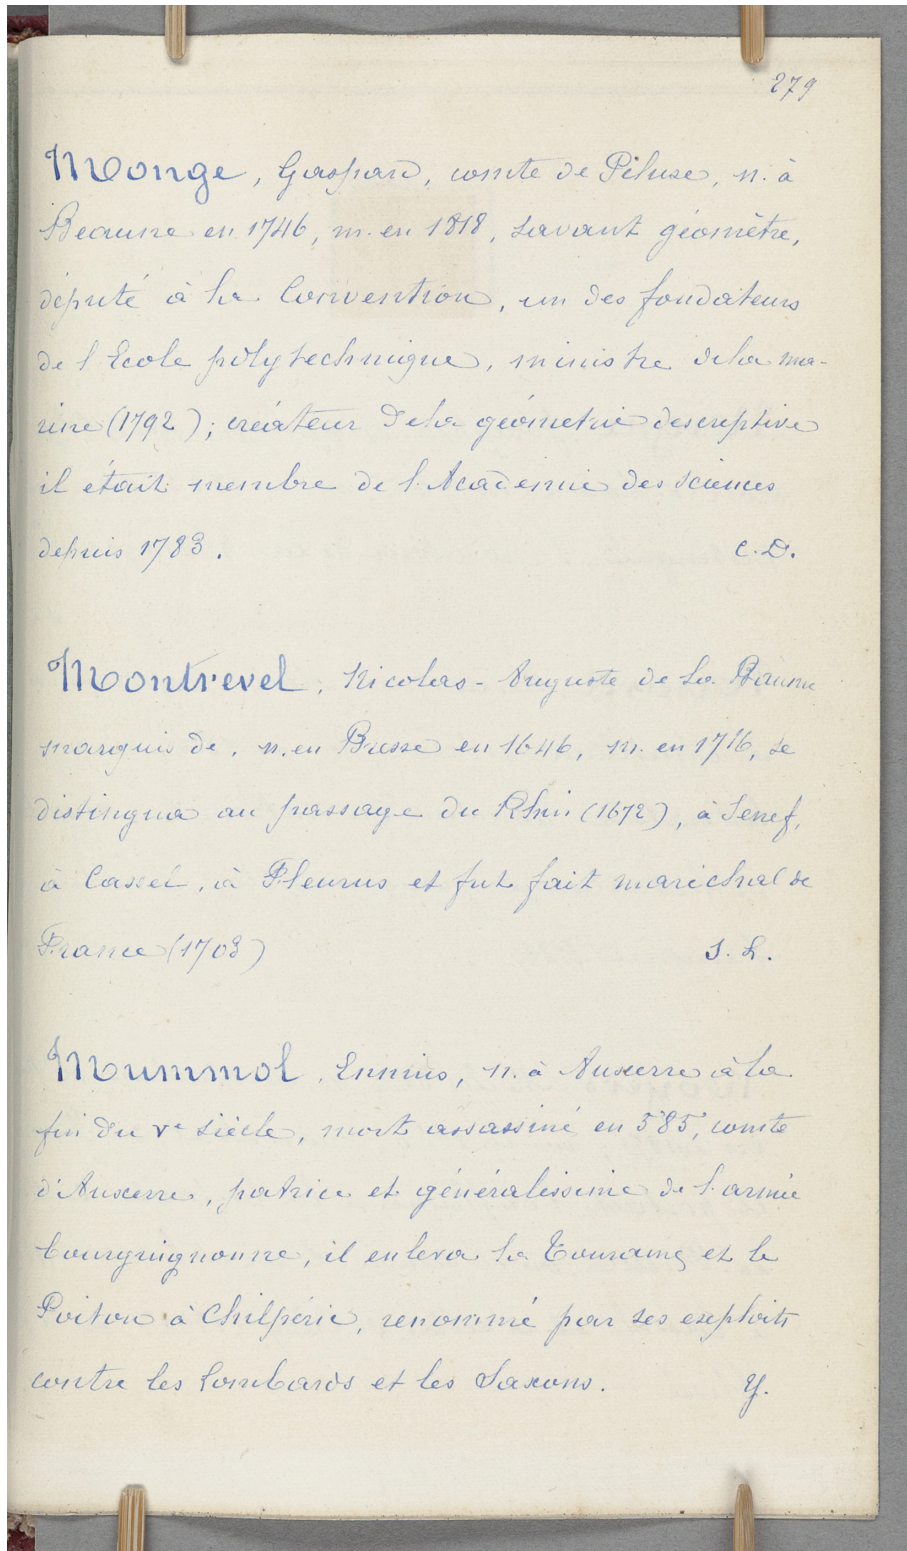 279
Monge, Gaspard, comte de Péluse, n. à
Beaune en 1746, m. en 1818, savant géomètre,
député à la Convention, un des fondateurs
de l'Ecole polytechnique, ministre de la ma-
rine (1792); créateur de la géométrie descriptive
il était membre de l'Académie des sciences
depuis 1783.
C. D.
Montrevel, Nicolas-Auguste de La Baume
marquis de, n. en Bresse en 1646, m. en 1716, se
distingua au passage du Rhin (1672), à Senef,
à Cassel, à Fleurus et fut fait maréchal de
France (1703)
S. L.
Mummol, Ennius, n. à Auxerre à la
fin du Ve siècle, mort assassiné en 585, comte
d'Auxerre, patrice et généralissime de l'armée
bourguignonne, il enleva la Touraine et le
Poitou à Chilpéric, renommé par ses exploits
contre les Lombards et les Saxons.
Y.